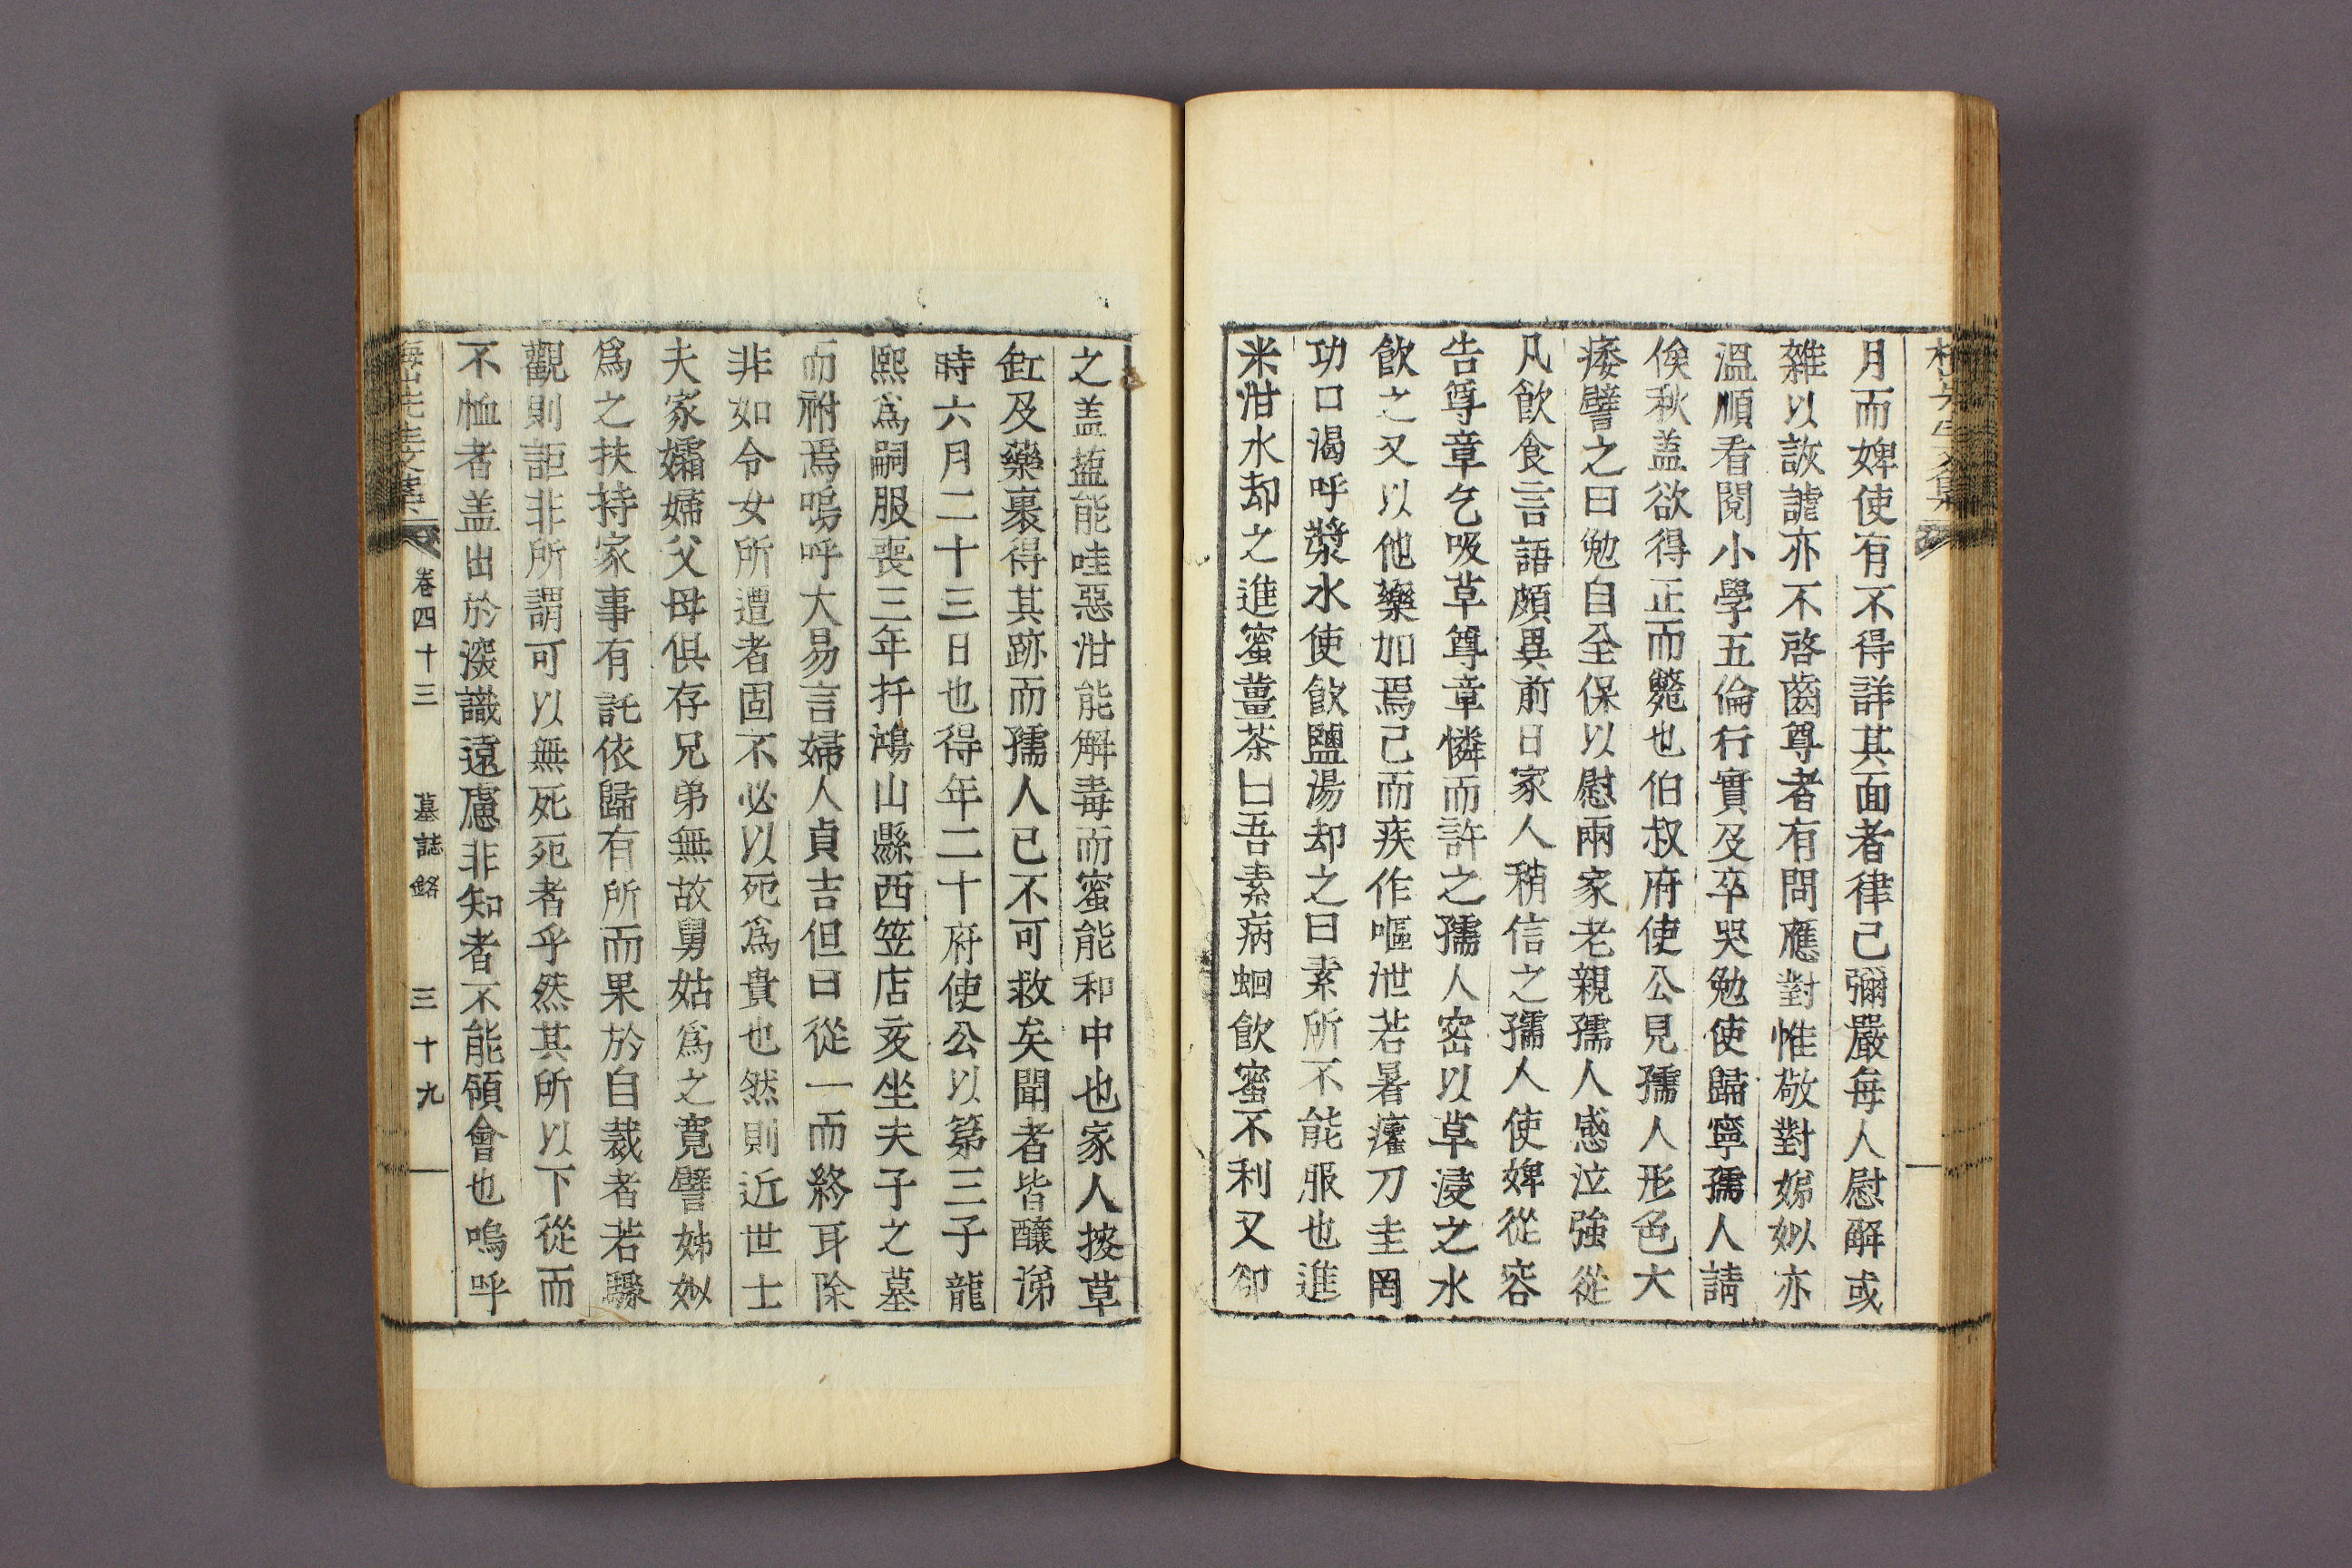 月而婢使有不得詳其面者律己彌嚴每人慰解或
雜以詼謔亦不啓齒尊者有問應對惟敬對娣姒亦
溫順看閱小學五倫行實及卒哭勉使歸寧孺人請
俟秋盖欲得正而斃也伯叔府使公見孺人形色大
痿譬之曰勉自全保以慰兩家老親孺人感泣強從
凡飮食言語頗異前日家人稍信之孺人使婢從容
告尊章乞吸草尊章憐而許之孺人密以草浸之水
飮之又以他藥加焉已而疾作嘔泄若暑癨刀圭罔
功口渴呼漿水使飮鹽湯却之曰素所不能服也進
米泔水却之進蜜薑茶曰吾素病蛔飮蜜不利又卻
之盖藍能哇惡泔能解毒而蜜能和中也家人按草
缸及藥裹得其跡而孺人已不可救矣聞者皆釀涕
時六月二十三日也得年二十府使公以第三子龍
熙爲嗣服喪三年扦鴻山縣西笠店亥坐夫子之墓
而祔焉嗚呼大易言婦人貞吉但曰從一而終耳除
非如令女所遭者固不必以死爲貴也然則近世士
夫家孀婦父母俱存兄弟無故舅姑爲之寬譬姊姒
爲之扶持家事有託依歸有所而果於自裁者若驟
觀則詎非所謂可以無死死者乎然其所以下從而
不恤者盖出於深識遠慮非知者不能領會也嗚呼
卷四十三　墓誌銘　三十九